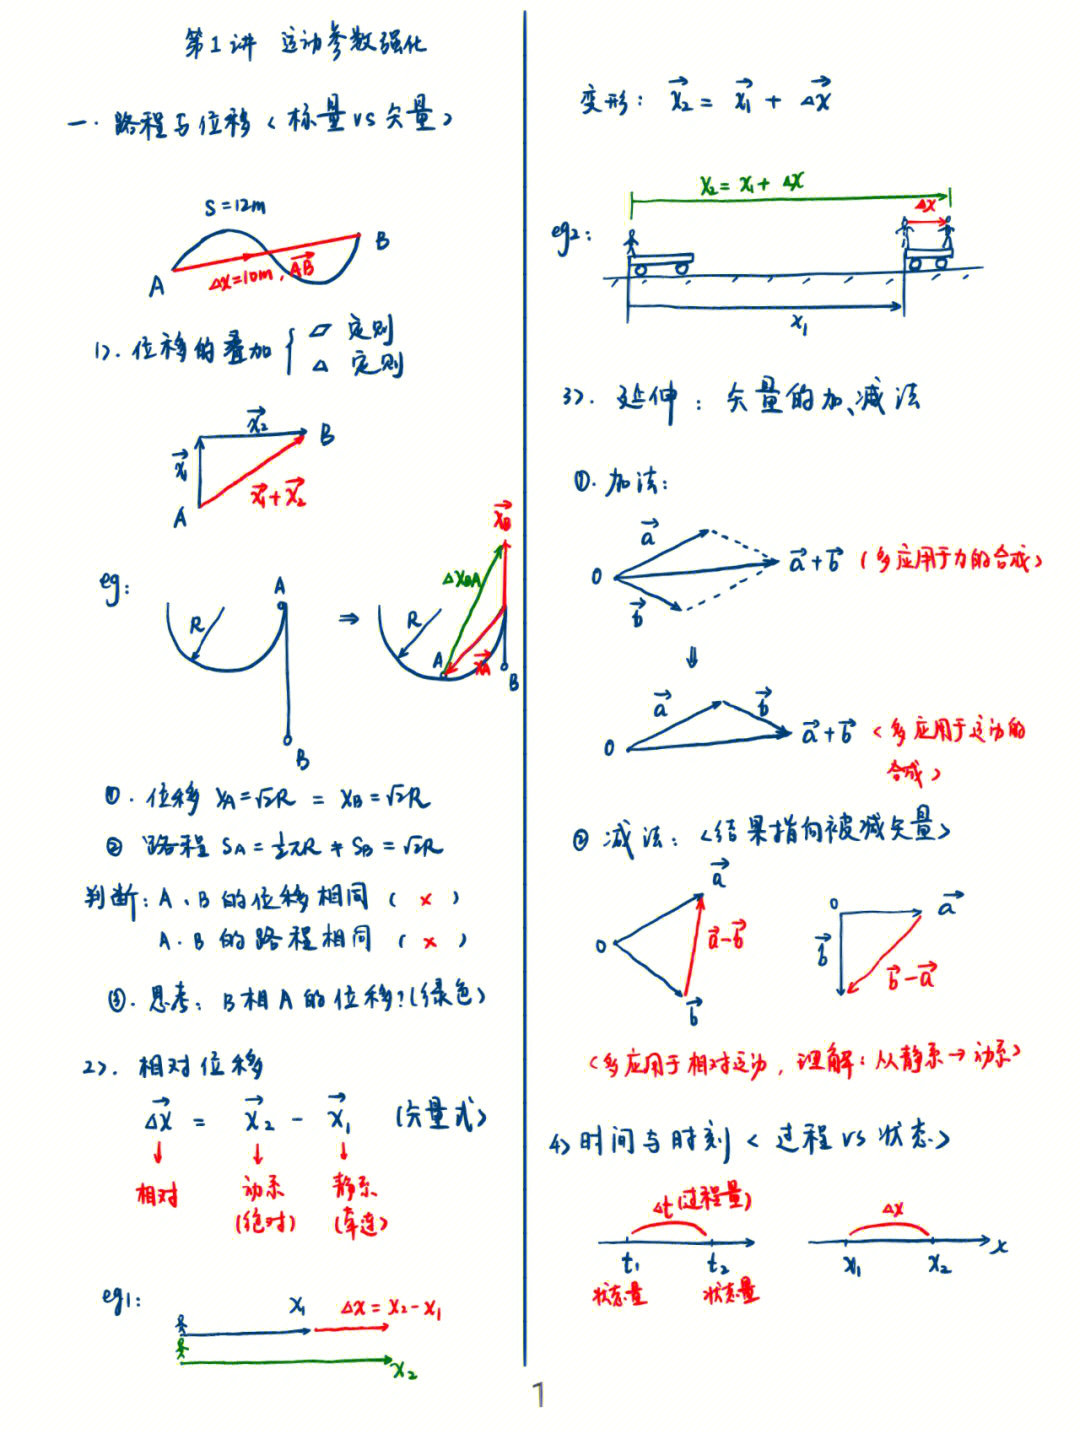 第1讲 运动参数强化
一. 路程与位移<标量vs矢量>
S=12m
A
B
Δx=10m, AB→
1>. 位移的叠加 { ▱ 定则
△ 定则
x₂→
B
x₁→
x₁→+x₂→
A
eg:
A
R
B
⇒
x_B→
Δx_BA
R
A
x_A→
B
①. 位移 x_A=√2R = x_B=√2R
② 路程 S_A=½πR ≠ S_B=√2R
判断: A、B的位移相同 ( × )
A.B的路程相同 ( × )
③. 思考: B相A的位移?(绿色)
2>. 相对位移
Δx→ = x₂→ - x₁→ (矢量式)
↓ ↓ ↓
相对 动系 静系
(绝对) (牵连)
eg1:
x₁ Δx=x₂-x₁
x₂
变形: x₂→ = x₁→ + Δx→
x₂=x₁+Δx
Δx
eg2:
x₁
3>. 延伸: 矢量的加、减法
①. 加法:
a→
O
a→+b→ (多应用于力的合成)
b→
⇓
a→
b→
O
a→+b→ <多应用于运动的
合成>
② 减法: <结果指向被减矢量>
a→
O
a→-b→
b→
O
a→
b→
b→-a→
<多应用于相对运动, 理解: 从静系→动系>
4> 时间与时刻 < 过程 vs 状态>
Δt(过程量)
t₁ t₂
状态量 状态量
Δx
x₁ x₂ x
1